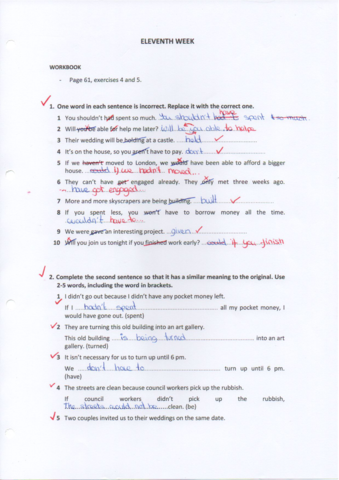 ELEVENTH WEEK
WORKBOOK
- Page 61, exercises 4 and 5.
1. One word in each sentence is incorrect. Replace it with the correct one.
1 You shouldn't had spent so much. You shouldn't have spent
2 Will you able for help me later? Will be you able to help
3 Their wedding will be holding at a castle. held
4 It's on the house, so you aren't have to pay. don't
5 If we haven't moved to London, we would have been able to afford a bigger
house. if we hadn't moved
6 They can't have got engaged already. They only met three weeks ago.
have got engaged
7 More and more skyscrapers are being building built
8 If you spent less, you won't have to borrow money all the time.
wouldn't have to
9 We were gave an interesting project. given
10 Will you join us tonight if you finished work early? could if you finish
2. Complete the second sentence so that it has a similar meaning to the original. Use
2-5 words, including the word in brackets.
1 I didn't go out because I didn't have any pocket money left.
If I hadn't spent all my pocket money, I
would have gone out. (spent)
2 They are turning this old building into an art gallery.
This old building is being turned into an art
gallery. (turned)
3 It isn't necessary for us to turn up until 6 pm.
We don't have to turn up until 6 pm.
(have)
4 The streets are clean because council workers pick up the rubbish.
If council workers didn't pick up the rubbish,
The streets would not be clean. (be)
5 Two couples invited us to their weddings on the same date.